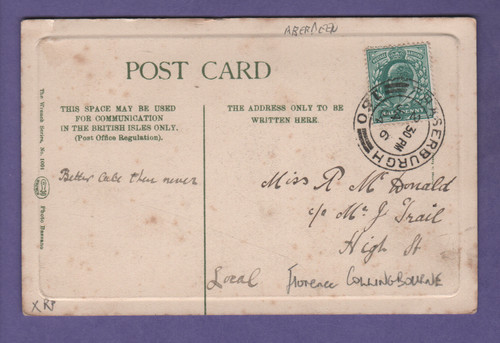 ABERDEEN
POST CARD
THIS SPACE MAY BE USED
FOR COMMUNICATION
IN THE BRITISH ISLES ONLY.
(Post Office Regulation).
THE ADDRESS ONLY TO BE
WRITTEN HERE.
FRASERBURGH
30 PM
6
O80
The Wrench Series, No. 1091
Photo Brown
Better late then never
Miss R McDonald
c/o Mr J Trail
High St
Local
Florence COLLINGBOURNE
XRP